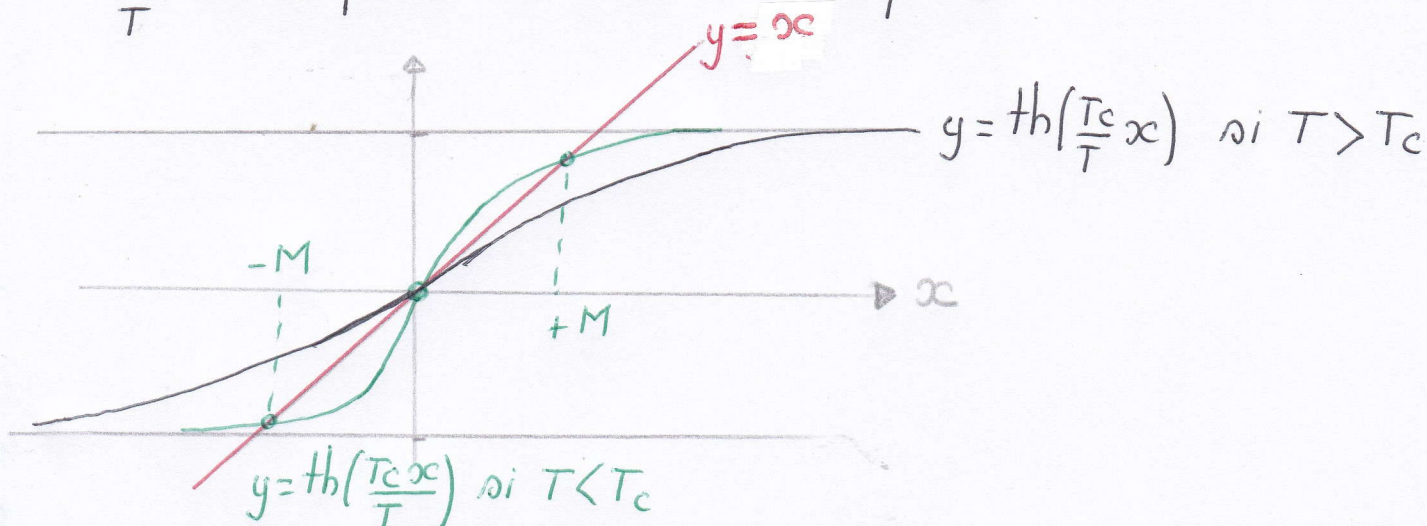 T
y = x
y = th(Tc/T x) si T > Tc
-M
x
+M
y = th(Tc x/T) si T < Tc